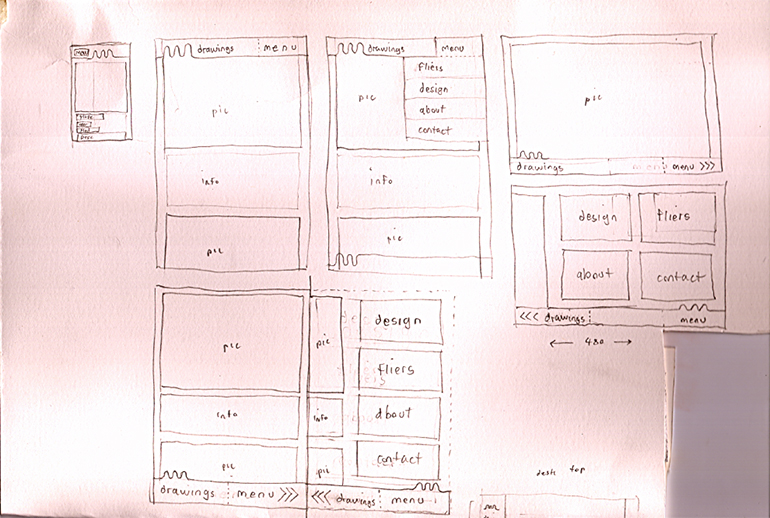 drawings menu
pic
info
pic
drawings menu
fliers
design
about
contact
pic
info
pic
pic
drawings menu >>>
design fliers
about contact
<<< drawings menu
480
pic
info
pic
drawings menu >>>
pic
info
pic
design
fliers
about
contact
<<< drawings menu
desk top